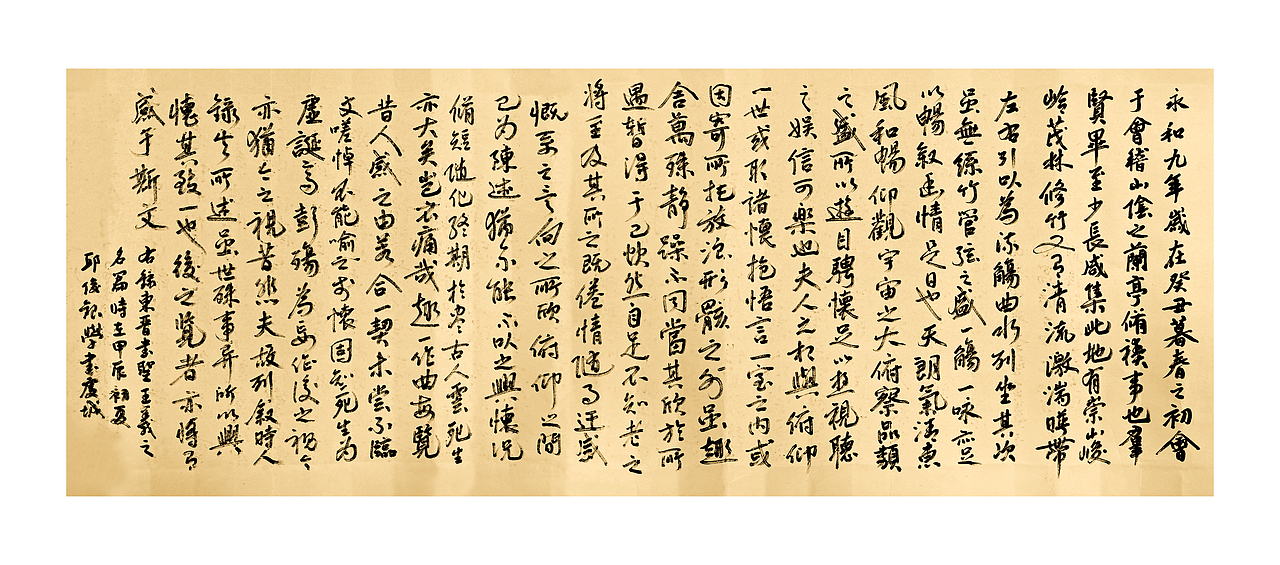 永和九年歲在癸丑暮春之初會
于會稽山陰之蘭亭脩禊事也羣
賢畢至少長咸集此地有崇山峻
岭茂林修竹又有清流激湍暎帶
左右引以為流觴曲水列坐其次
虽無絲竹管弦之盛一觴一咏亦足
以暢叙幽情是日也天朗氣清惠
風和暢仰觀宇宙之大俯察品類
之盛所以遊目騁懷足以極視聽
之娛信可樂也夫人之相與俯仰
一世或取諸懷抱悟言一室之内或
因寄所托放浪形骸之外虽趣
舍萬殊靜躁不同當其欣於所
遇暫得于己怏然自足不知老之
將至及其所之既倦情隨事迁感
慨系之矣向之所欣俯仰之間
已为陳迹猶不能不以之興懷况
脩短隨化終期於盡古人雲死生
亦大矣豈不痛哉趣一作曲每覽
昔人感之由若合一契未嘗不臨
文嗟悼不能喻之于懷固知死生为
虛誕齊彭殤為妄作後之視今
亦猶今之視昔悲夫故列叙時人
錄其所述虽世殊事异所以興
懷其致一也後之覽者亦將有
感于斯文
右錄東晋書聖王羲之
名篇時在甲辰初夏
邱俊 學書 城